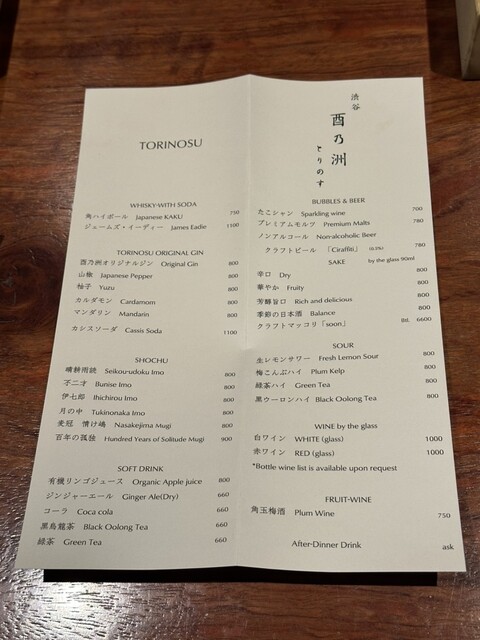 TORINOSU
WHISKY-WITH SODA
角ハイボール Japanese KAKU 750
ジェームズ・イーディー James Eadie 1100
TORINOSU ORIGINAL GIN
酉乃洲オリジナルジン Original Gin 800
山椒 Japanese Pepper 800
柚子 Yuzu 800
カルダモン Cardamom 800
マンダリン Mandarin 800
カシスソーダ Cassis Soda 1100
SHOCHU
晴耕雨読 Seikourudoku Imo 800
不二才 Bunise Imo 800
伊七郎 Ihichirou Imo 800
月の中 Tukinonaka Imo 800
麦冠 情け嶋 Nasakejima Mugi 800
百年の孤独 Hundred Years of Solitude Mugi 900
SOFT DRINK
有機リンゴジュース Organic Apple juice 800
ジンジャーエール Ginger Ale(Dry) 660
コーラ Coca cola 660
黒烏龍茶 Black Oolong Tea 660
緑茶 Green Tea 660
渋谷
酉乃洲
とりのす
BUBBLES & BEER
たこシャン Sparkling wine 700
プレミアムモルツ Premium Malts 780
ノンアルコール Non-alcoholic Beer
クラフトビール 「Ciraffiti」 (0.3%) 780
SAKE by the glass 90ml
辛口 Dry 800
華やか Fruity 800
芳醇旨口 Rich and delicious 800
季節の日本酒 Balance 800
クラフトマッコリ「soon」 Btl. 6600
SOUR
生レモンサワー Fresh Lemon Sour 800
梅こんぶハイ Plum Kelp 800
緑茶ハイ Green Tea 800
黒ウーロンハイ Black Oolong Tea 800
WINE by the glass
白ワイン WHITE (glass) 1000
赤ワイン RED (glass) 1000
*Bottle wine list is available upon request
FRUIT-WINE
角玉梅酒 Plum Wine 750
After-Dinner Drink ask